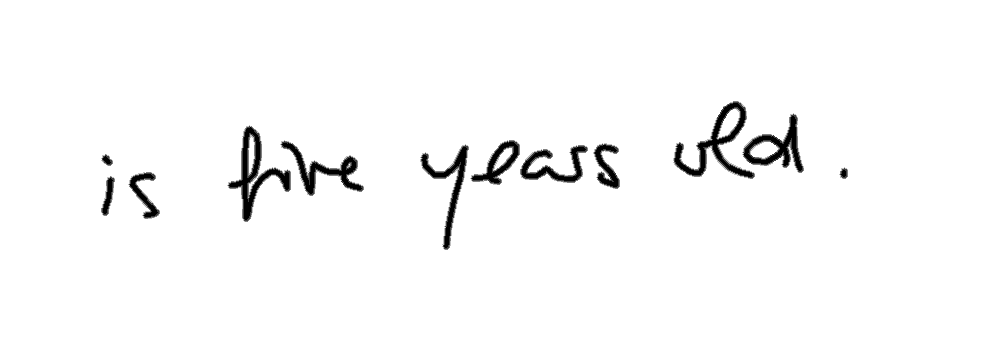 is five years old.